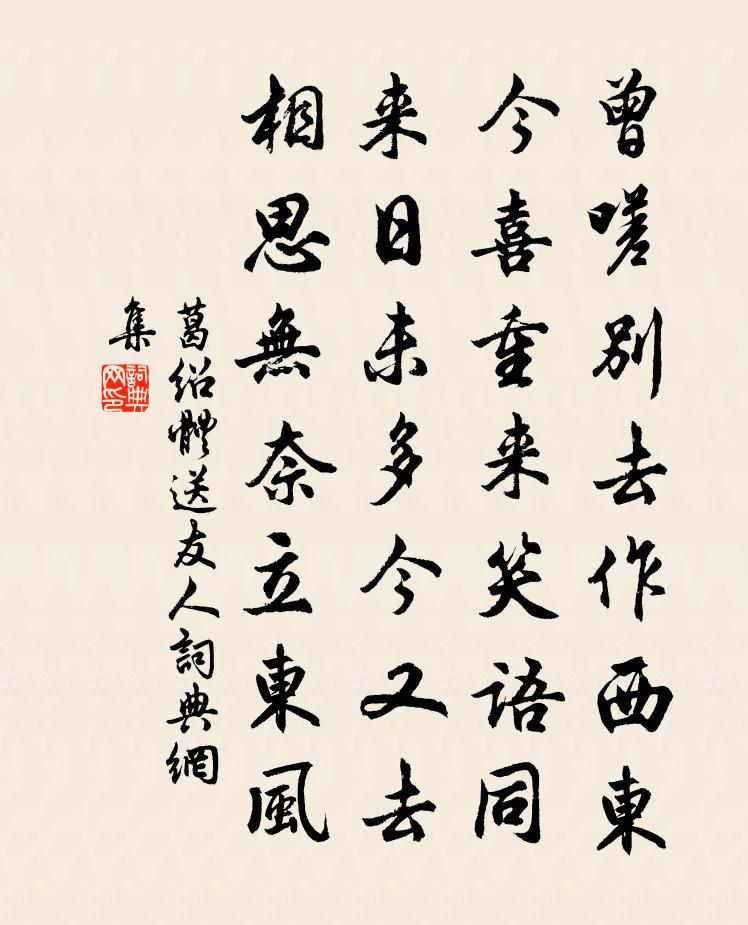 曾嗟別去作西東
今喜重来笑語同
来日未多今又去
相思無奈立東風
葛紹體送友人詞典網
集
詞典网印